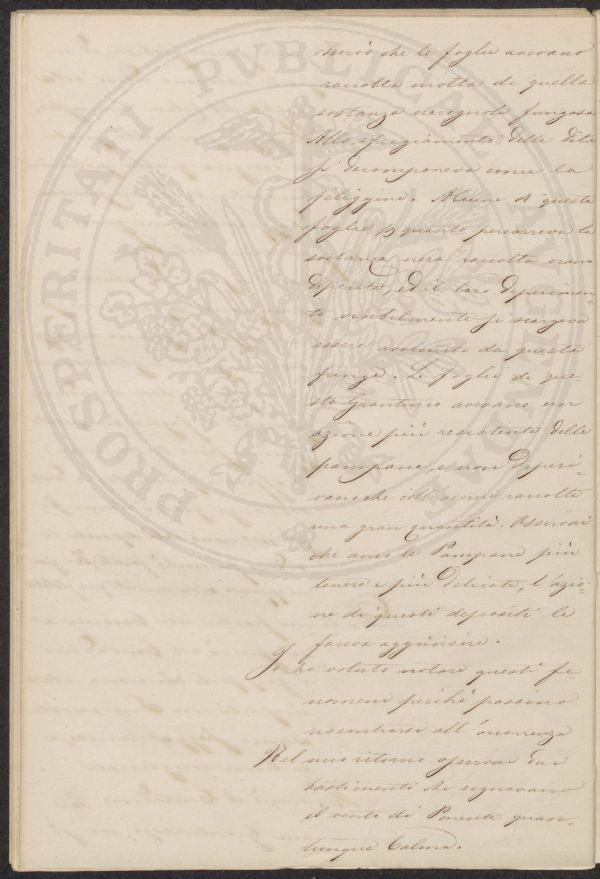 osservò che le foglie avevano
raccolta molta di quella
sostanza nerognola fungosa
Allo sfregiamento delle dita
si decomponeva come la
filiggine. Alcune di queste
foglie p quanto percorreva la
sostanza nera raccolta erano
deperite, ed il loro deperimen-
to visibilmente si scorgeva
essere avvenuto da questa
funga. Le foglie di que-
sto Granturco avevano un
azione più resistente delle
pampane, e non deperi-
vano che coll'avere raccolte
una gran quantità. Osservai
che anco le Pampane più
tenere e più delicate, l'azio-
ne di questi depositi le
faceva
Io ho voluto notare questi fe-
nomeni perché possino
riscontrarsi all'occorrenza
Nel mio ritorno osservai dai
bastimenti che segnavano
il vento di Ponente quan-
tunque Calma.
PROSPERITATI PVBLICAE
AVGENDAE